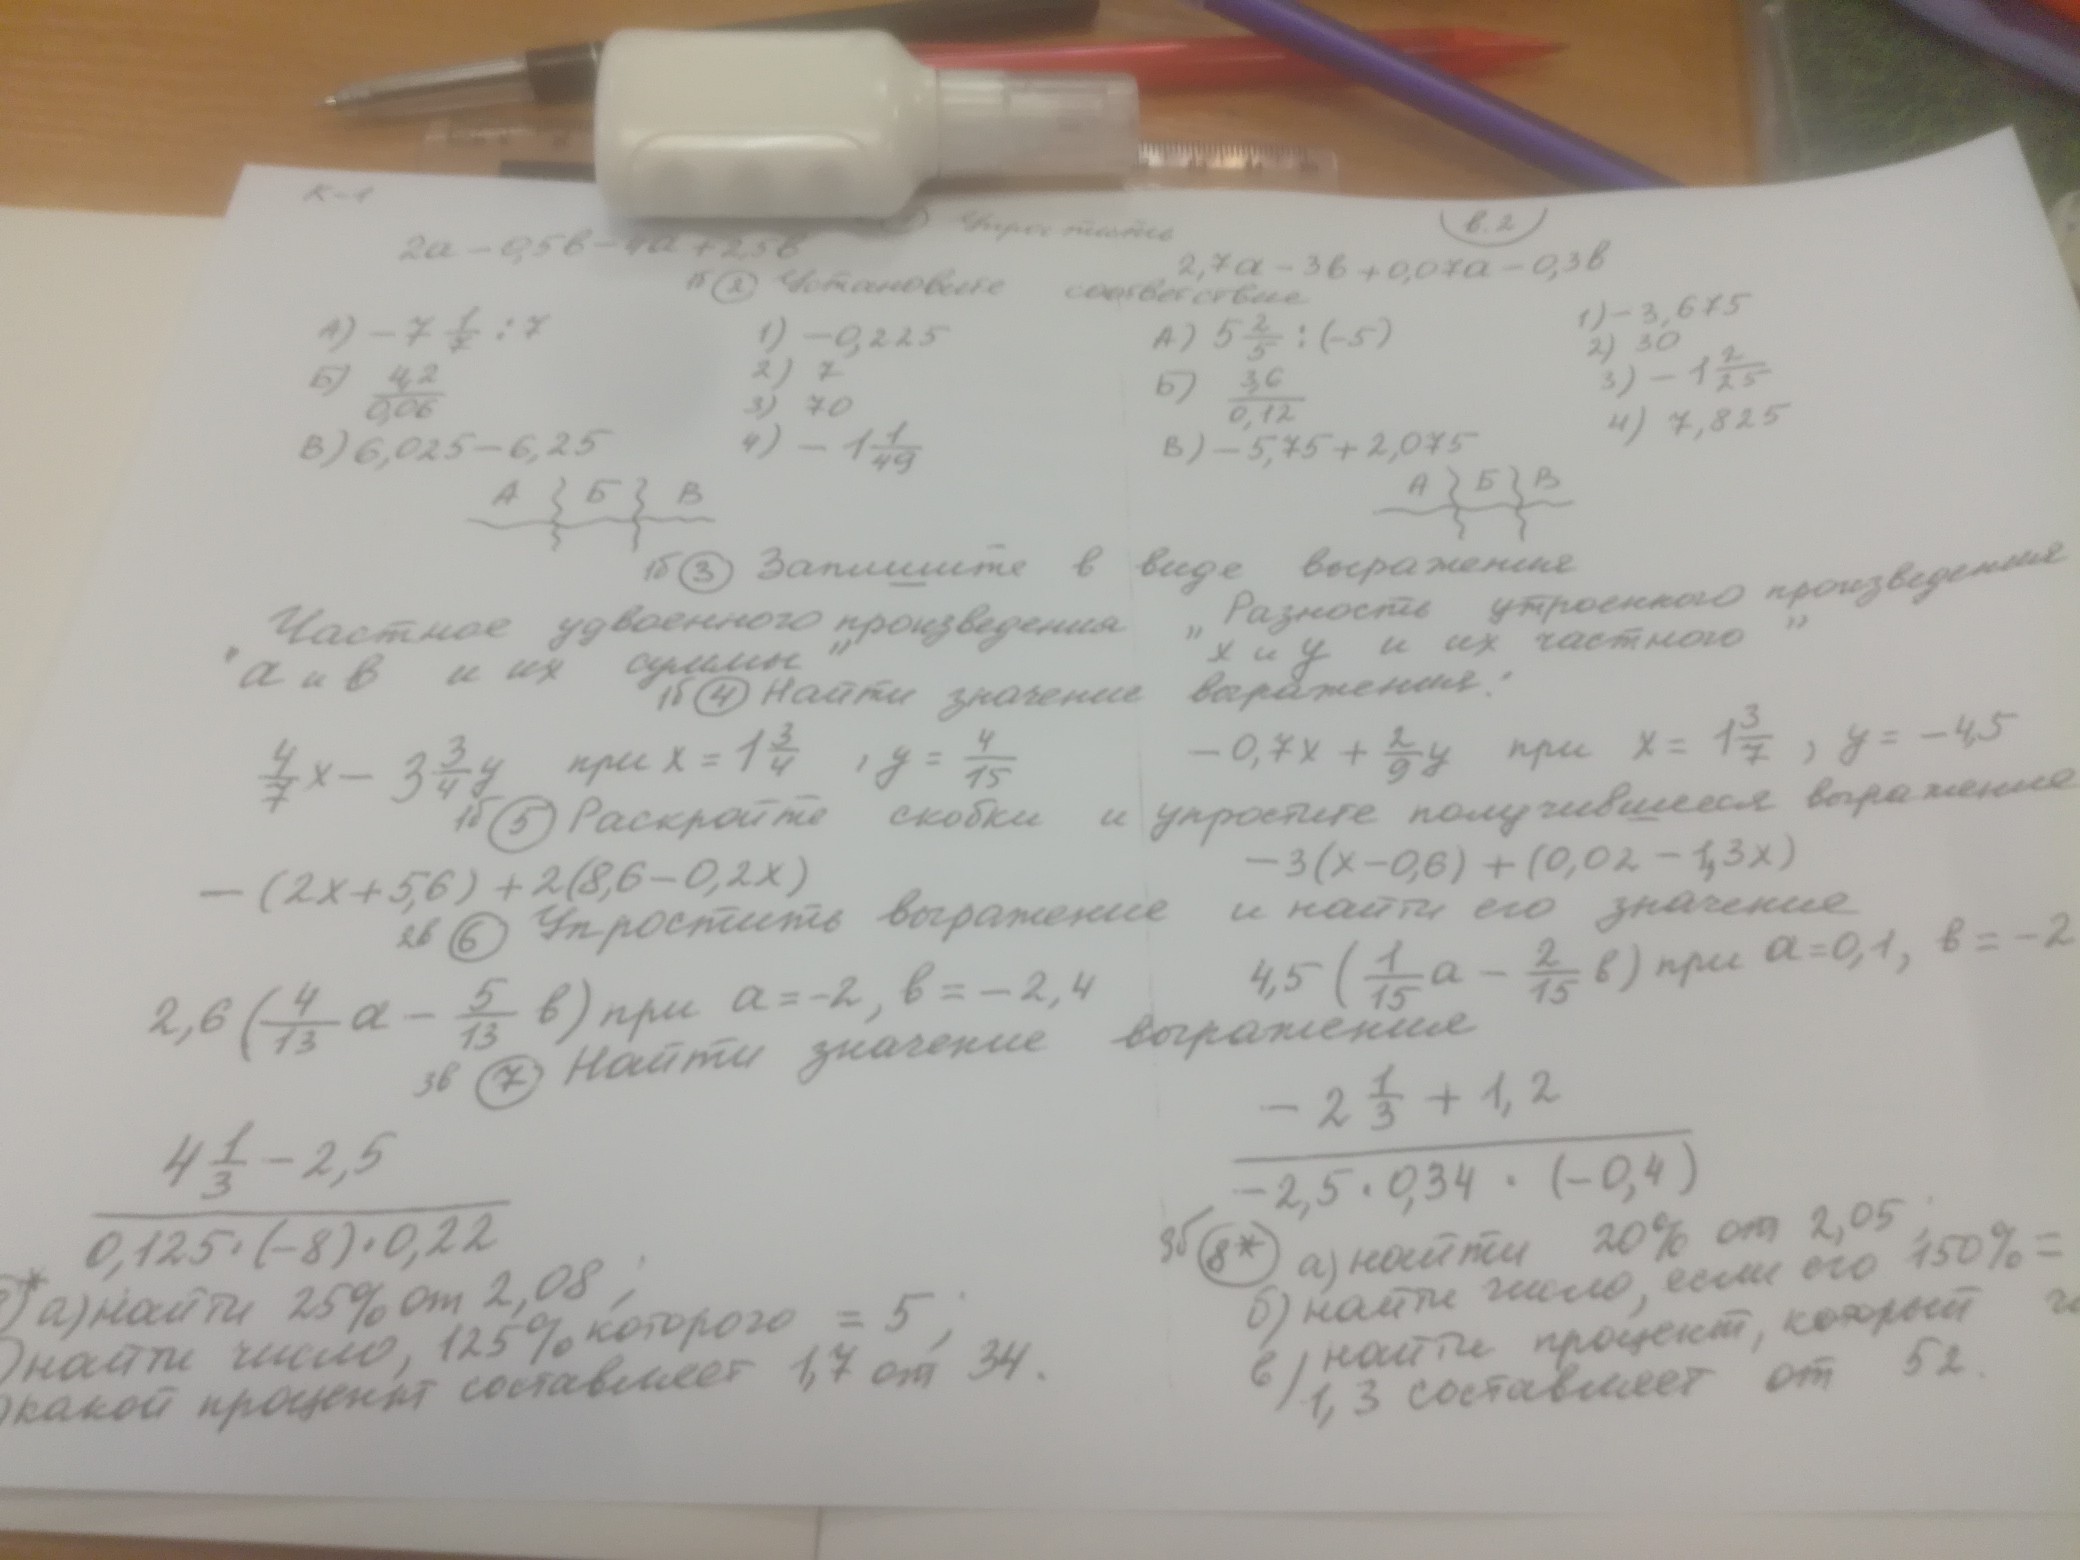 К-1
Упростить
в.2
2а - 0,5в - 4а + 2,5в
2,7а - 3в + 0,07а - 0,3в
1б ② Установите соответствие
А) -7 1/7 : 7
1) -0,225
А) 5 2/5 : (-5)
1) -3,675
Б) 4,2/0,06
2) 7
Б) 3,6/0,12
2) 30
3) 70
3) -1 2/25
В) 6,025 - 6,25
4) -1 1/49
В) -5,75 + 2,075
4) 7,825
А Б В
А Б В
1б ③ Запишите в виде выражения
"Частное удвоенного произведения
а и в и их суммы"
"Разность утроенного произведения
х и у и их частного"
1б ④ Найти значение выражения:
4/7 x - 3 3/4 y при x = 1 3/4 , y = 4/15
-0,7x + 2/9 y при x = 1 3/7 , y = -4,5
1б ⑤ Раскройте скобки и упростите получившееся выражение
-(2x + 5,6) + 2(8,6 - 0,2x)
-3(x - 0,6) + (0,02 - 1,3x)
2в ⑥ Упростить выражение и найти его значение
2,6 (4/13 а - 5/13 в) при а = -2, в = -2,4
4,5 (1/15 а - 2/15 в) при а = 0,1, в = -2
3в ⑦ Найти значение выражения
4 1/3 - 2,5
0,125 · (-8) · 0,22
-2 1/3 + 1,2
-2,5 · 0,34 · (-0,4)
* а) найти 25% от 2,08;
) найти число, 125% которого = 5;
) какой процент составляет 1,7 от 34.
3б 8* а) найти 20% от 2,05;
б) найти число, если его 150% =
в) найти процент, который
1,3 составляет от 52.